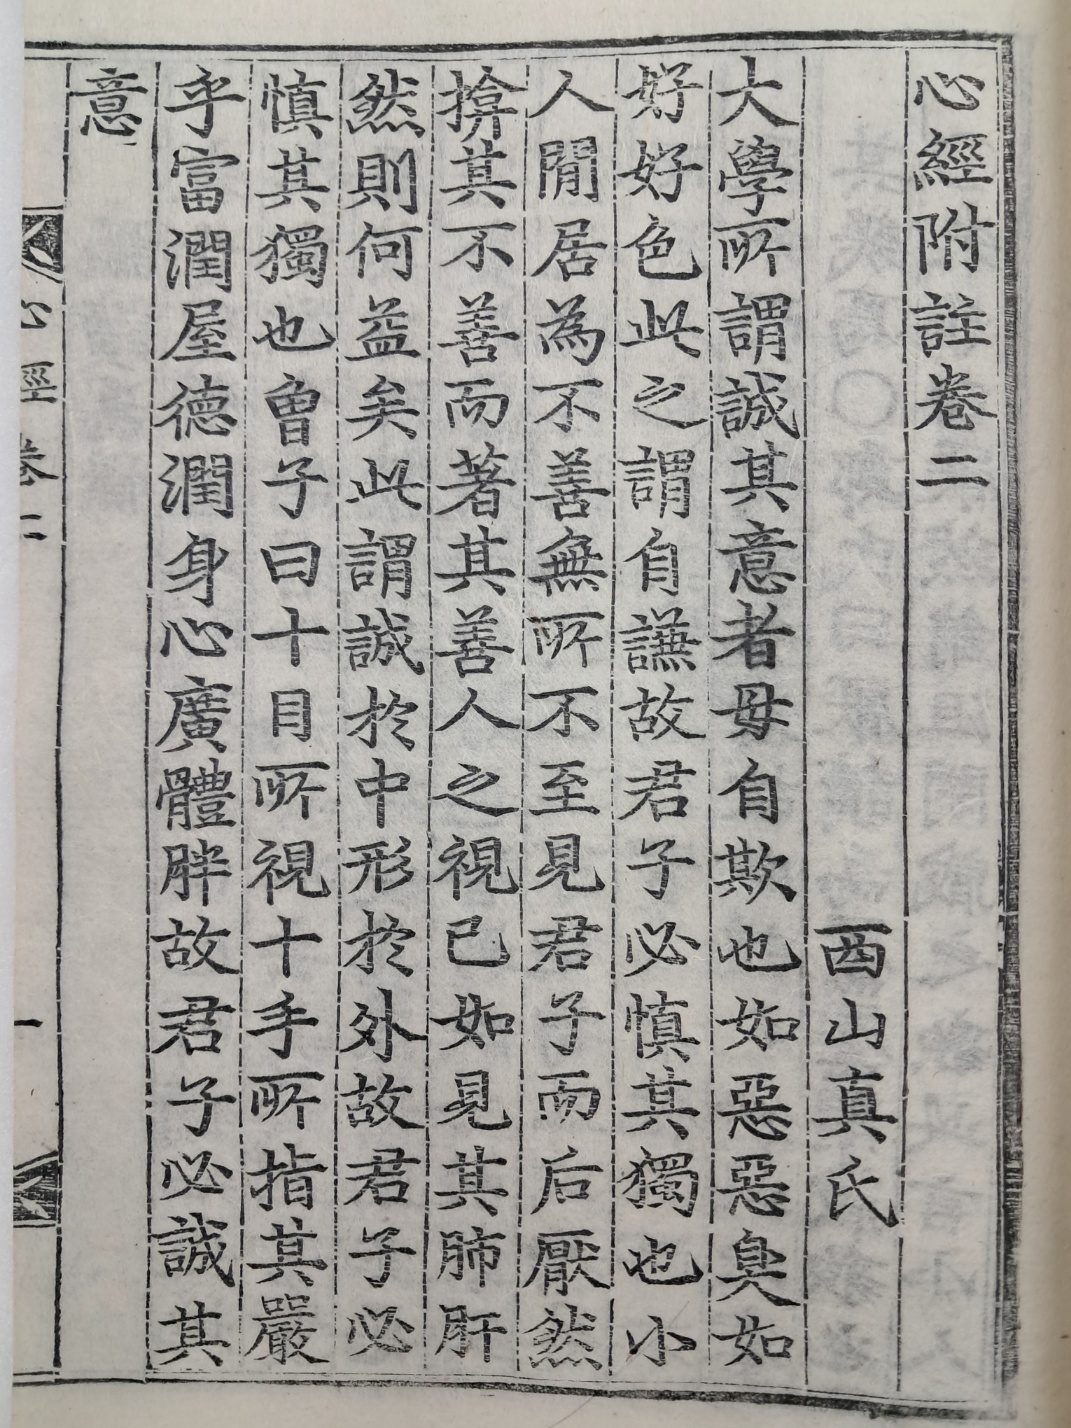 心經附註卷二
西山真氏
大學所謂誠其意者毋自欺也如惡惡臭如
好好色此之謂自謙故君子必慎其獨也小
人閒居為不善無所不至見君子而后厭然
揜其不善而著其善人之視己如見其肺肝
然則何益矣此謂誠於中形於外故君子必
慎其獨也曾子曰十目所視十手所指其嚴
乎富潤屋德潤身心廣體胖故君子必誠其
意
心經 卷二
一